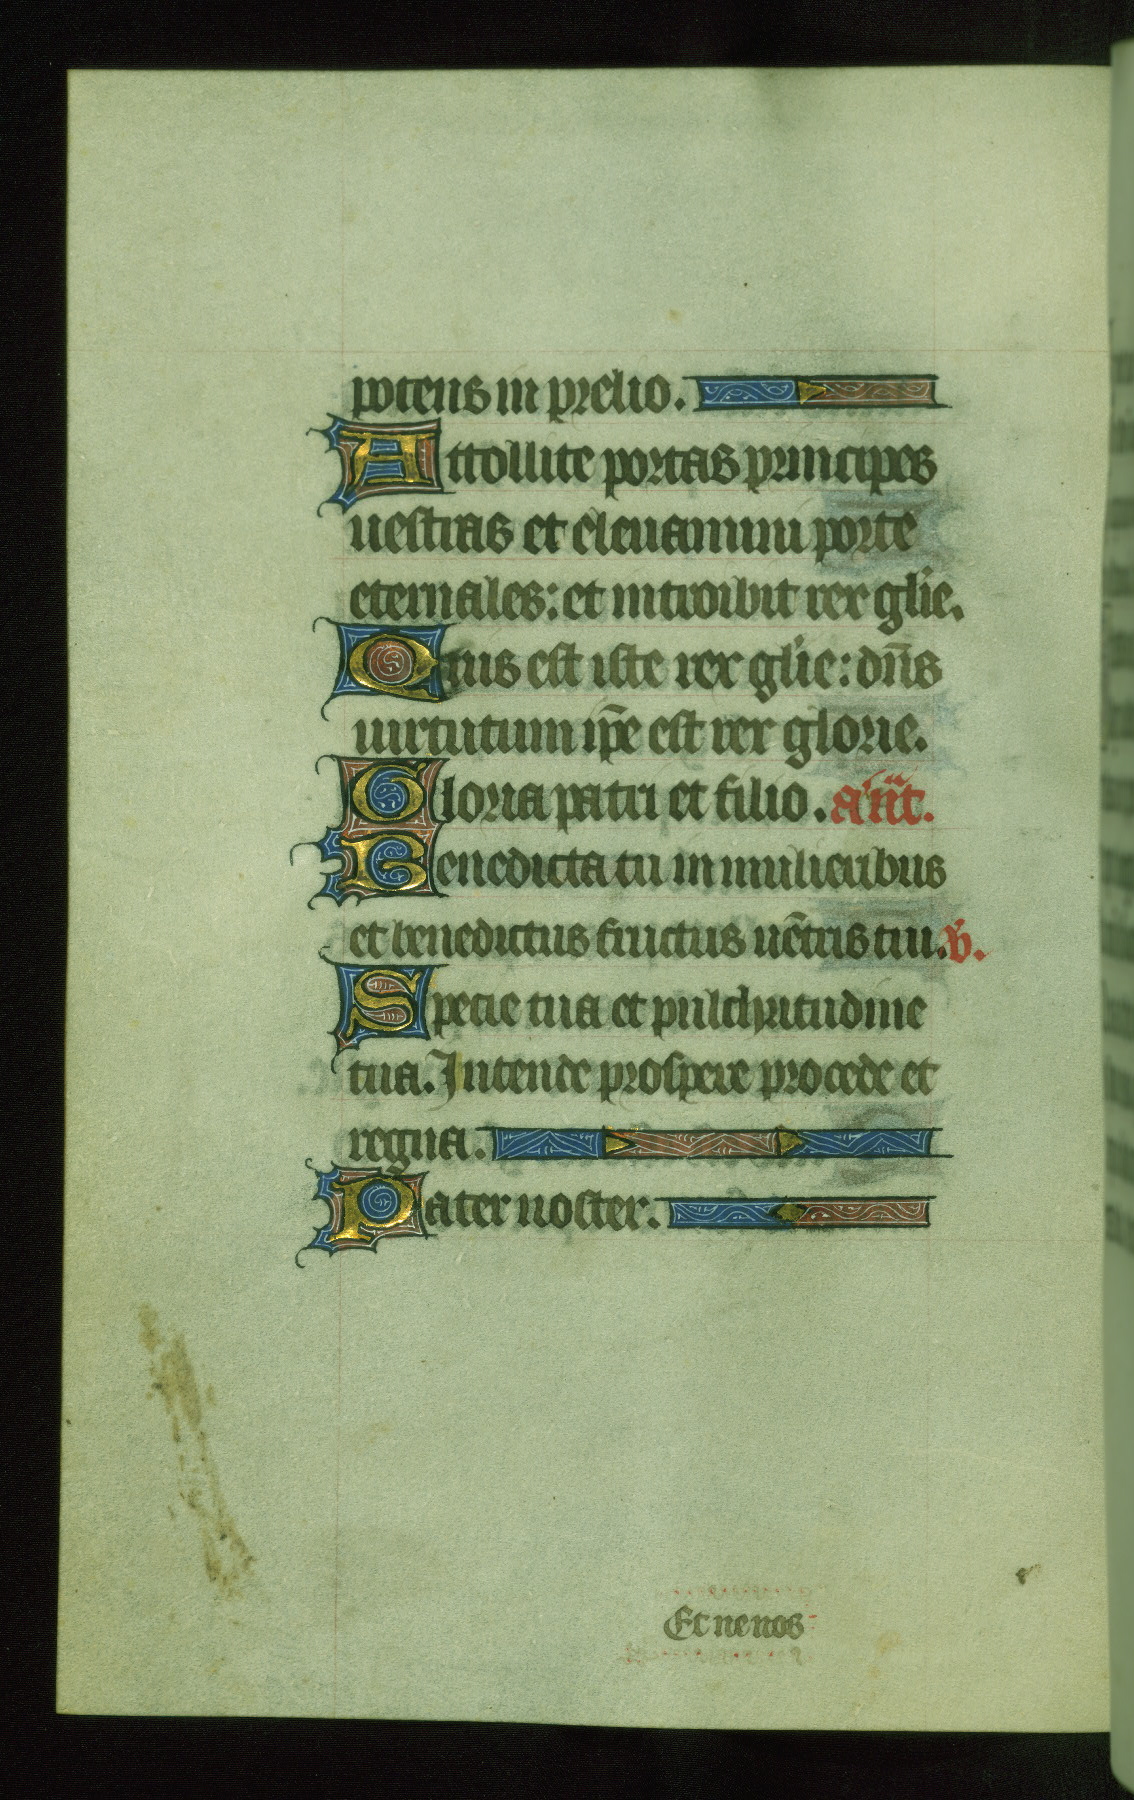 potens in prelio.
Attollite portas principes
uestras et eleuamini porte
eternales: et introibit rex gl̄ie.
Quis est iste rex gl̄ie: dn̄s
uirtutum ip̄e est rex glorie.
Gloria patri et filio. an̄t.
Benedicta tu in mulieribus
et benedictus fructus uēntris tui. v̄.
Specie tua et pulchritudine
tua. Intende prospere procede et
regna.
Pater noster.
Et ne nos